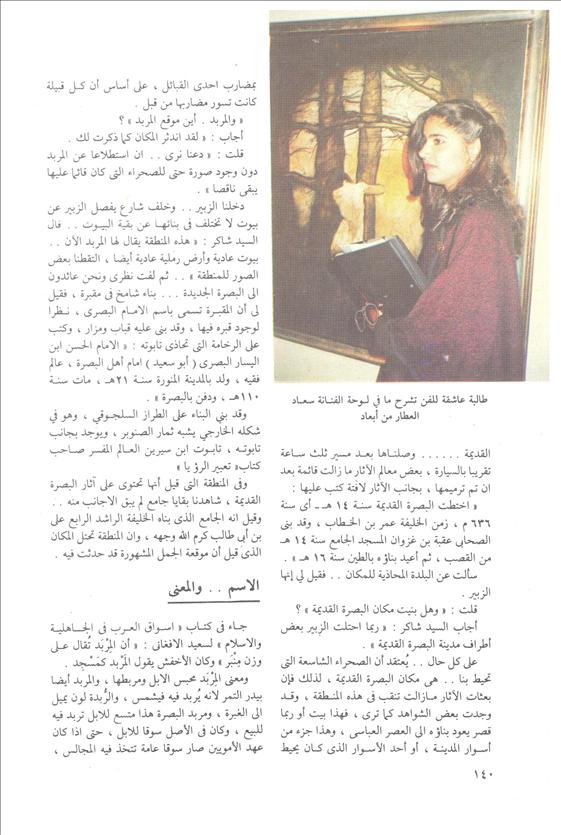 طالبة عاشقة للفن تشرح ما في لوحة الفنانة سعاد
العطار من أبعاد
القديمة ...... وصلناها بعد مسير ثلث ساعة
تقريبا بالسيارة ، بعض معالم الآثار ما زالت قائمة بعد
ان تم ترميمها ، بجانب الآثار لافتة كتب عليها :
« اختطت البصرة القديمة سنة ١٤ هـ ـ أى سنة
٦٣٦ م ، زمن الخليفة عمر بن الخطاب ، وقد بنى
الصحابى عقبة بن غزوان المسجد الجامع سنة ١٤ هـ
من القصب ، ثم أعيد بناؤه بالطين سنة ١٦ هـ » .
سألت عن البلدة المحاذية للمكان .. فقيل لي إنها
الزبير .
قلت : « وهل بنيت مكان البصرة القديمة » ؟
أجاب السيد شاكر : « ربما احتلت الزبير بعض
أطراف مدينة البصرة القديمة » .
على كل حال .. يُعتقد أن الصحراء الشاسعة التى
تحيط بنا .. هى مكان البصرة القديمة ، لذلك فإن
بعثات الآثار مازالت تنقب فى هذه المنطقة ، وقد
وجدت بعض الشواهد كما ترى ، فهذا بيت أو ربما
قصر يعود بناؤه الى العصر العباسى ، وهذا جزء من
أسوار المدينة ، أو أحد الأسوار الذى كان يحيط
بمضارب احدى القبائل ، على أساس أن كل قبيلة
كانت تسور مضاربها من قبل .
« والمربد . أين موقع المربد » ؟
أجاب : « لقد اندثر المكان كما ذكرت لك .
قلت : « دعنا نرى .. ان استطلاعا عن المربد
دون وجود صورة حتى للصحراء التى كان قائما عليها
يبقى ناقصا » .
دخلنا الزبير .. وخلف شارع يفصل الزبير عن
بيوت لا تختلف فى بنائها عن بقية البيوت .. قال
السيد شاكر : « هذه المنطقة يقال لها المربد الآن ..
بيوت عادية وأرض رملية عادية أيضا ، التقطنا بعض
الصور للمنطقة » .. ثم لفت نظرى ونحن عائدون
الى البصرة الجديدة ... بناء شامخ فى مقبرة ، فقيل
لى أن المقبرة تسمى باسم الامام البصرى ، نظرا
لوجود قبره فيها ، وقد بنى عليه قباب ومزار ، وكتب
على الرخامة التى تحاذى تابوته : « الامام الحسن ابن
اليسار البصرى ( أبو سعيد ) امام أهل البصرة ، عالم
فقيه ، ولد بالمدينة المنورة سنة ٢١هـ ، مات سنة
١١٠هـ ، ودفن بالبصرة » .
وقد بني البناء على الطراز السلجوقي ، وهو في
شكله الخارجي يشبه ثمار الصنوبر ، ويوجد بجانب
تابوته ، تابوت ابن سيرين العالم المفسر صاحب
كتاب « تعبير الرؤيا »
وفى المنطقة التى قيل أنها تحتوى على آثار البصرة
القديمة ، شاهدنا بقايا جامع لم يبق الاجانب منه ..
وقيل انه الجامع الذى بناه الخليفة الراشد الرابع على
بن أبي طالب كرم الله وجهه ، وان المنطقة تحتل المكان
الذى قيل أن موقعة الجمل المشهورة قد حدثت فيه .
الاسم .. والمعنى
جاء فى كتاب « اسواق العرب فى الجاهلية
والاسلام » لسعيد الافغانى : « أن المِرْبَد تُقال على
وزن مِنْبَر » وكان الأخفش يقول المَرْبد كمَسْجِد .
ومعنى المِرْبَد محبس الابل ومربطها ، والمربد أيضا
بيدر التمر لانه يُربد فيه فيشمس ، والرُّبدة لون يميل
الى الغبرة ، ومربد البصرة هذا متسع للابل تربد فيه
للبيع ، وكان فى الأصل سوقا للابل ، حتى اذا كان
عهد الأمويين صار سوقا عامة تتخذ فيه المجالس ،
١٤٠